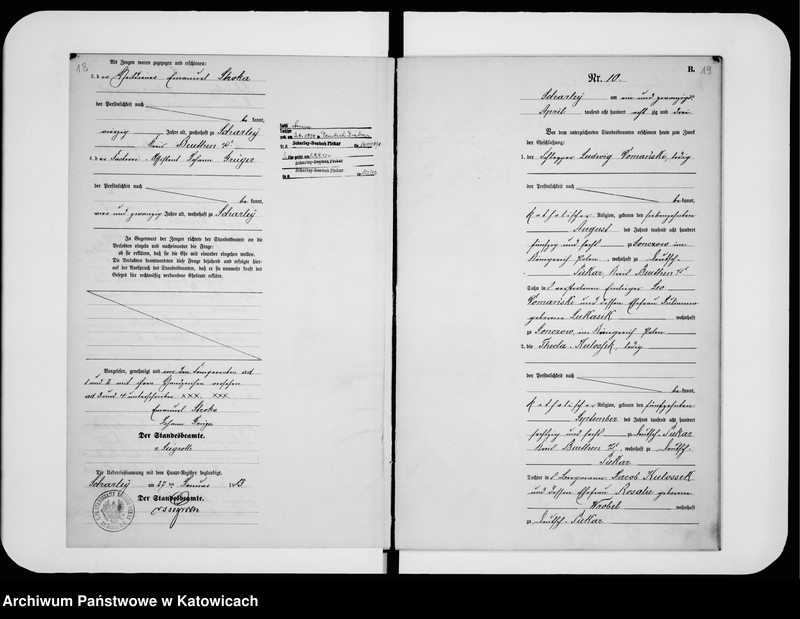 18
Als Zeugen waren zugezogen und erschienen:
3. der Emanuel Stroka
der Persönlichkeit nach
be kannt,
vierzig Jahre alt, wohnhaft zu Scharley
Kreis Beuthen
4. der Johann
der Persönlichkeit nach
be kannt,
vier und zwanzig Jahre alt, wohnhaft zu Scharley
In Gegenwart der Zeugen richtete der Standesbeamte an die
Verlobten einzeln und nacheinander die Frage:
ob sie erklären, daß sie die Ehe mit einander eingehen wollen.
Die Verlobten beantworteten diese Frage bejahend und erfolgte hier-
auf der Ausspruch des Standesbeamten, daß er sie nunmehr kraft des
Gesetzes für rechtmäßig verbundene Eheleute erkläre.
Vorgelesen, genehmigt und von den
1 und 2 mit ihren Handzeichen versehen
ad 3 und 4 unterschrieben XXX. XXX.
Emanuel Stroka
Johann
Der Standesbeamte.
Die Uebereinstimmung mit dem Haupt-Register beglaubigt.
Scharley am 27 ten Januar 18
Der Standesbeamte.
Scharley-Deutsch Piekar
Scharley-Deutsch Piekar
B. 19
Nr. 10.
Scharley am ein und zwanzigsten
April tausend acht hundert acht zig und drei
Vor dem unterzeichneten Standesbeamten erschienen heute zum Zweck
der Eheschließung:
1. der Schlepper Ludwig Tomański, ledig
der Persönlichkeit nach
be kannt,
Katholischer Religion, geboren den siebenzehnten
August des Jahres tausend acht hundert
fünfzig und sechs zu Lonczow im
Königreich Polen, wohnhaft zu Deutsch-
Piekar, Kreis Beuthen
Sohn des verstorbenen Einlieger Leo
Tomański und dessen Ehefrau
geborene Lukasik wohnhaft
zu Lonczow, im Königreich Polen
2. die Thecla Kulossek, ledig
der Persönlichkeit nach
be kannt,
Katholischer Religion, geboren den fünfzehnten
September des Jahres tausend acht hundert
sechszig und sechs zu Deutsch-Piekar
Kreis Beuthen, wohnhaft zu Deutsch-
Piekar
Tochter des Bergmann Jacob Kulossek
und dessen Ehefrau Rosalie geborene
Wrobel wohnhaft
zu Deutsch-Piekar
Archiwum Państwowe w Katowicach